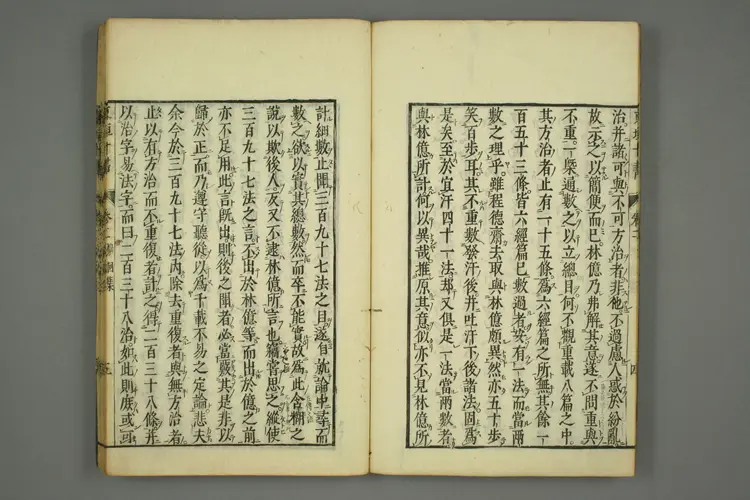 治并諸可與不可方治者非他不過慮人惑於紛亂
故示之以簡便而已林億乃弗解其意遂不問重與
不重一槩通數之以立總目何不觀重載八篇之中
其方治者止有一十五條為六經篇之所無其餘一
百五十三條皆六經篇已數過者安有一法而當兩
數之理乎雖程德齋去取與林億頗異然亦五十步
笑百步耳其不重數發汗後并吐汗下後諸法固爲
是矣至於宜汗四十一法却又俱是一法當兩數者
與林億所計何以異哉推原其意似亦不見林億所
計細數止聞三百九十七法之目遂自就論中尋而
數之欲以實其總數然而卒不能實故爲此含糊之
說以欺後人反又不逮林億所言也竊嘗思之縱使
三百九十七法之言不出於林億等而出於億之前
亦不足用此言既出則後之聞者必當覈其是非以
歸於正而乃遵守聽從以爲千載不易之定論悲夫
余今於三百九十七法内除去重復者與無方治者
止以有方治而不重復者計之得二百三十八條并
以治字易法字而曰二百三十八治如此則庶或可